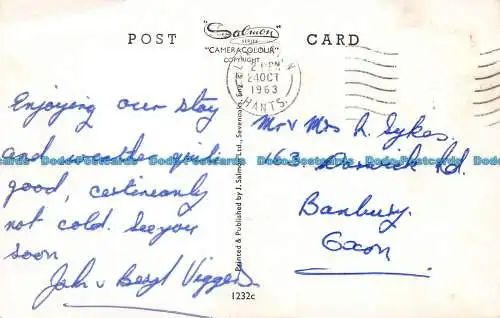 "Salmon
SERIES
"CAMERACOLOUR"
COPYRIGHT
POST CARD
2 PM
24 OCT
1963
HANTS.
Enjoying our stay
and weather quite
good, certainly
not cold. See you
soon
John & Beryl Viggers
Printed & Published by J. Salmon Ltd., Sevenoaks, England
1232c
Mr & Mrs R. Sykes.
163, Rd.
Banbury.
Oxon.
Dodo-Postcards Dodo-Postcards Dodo-Postcards